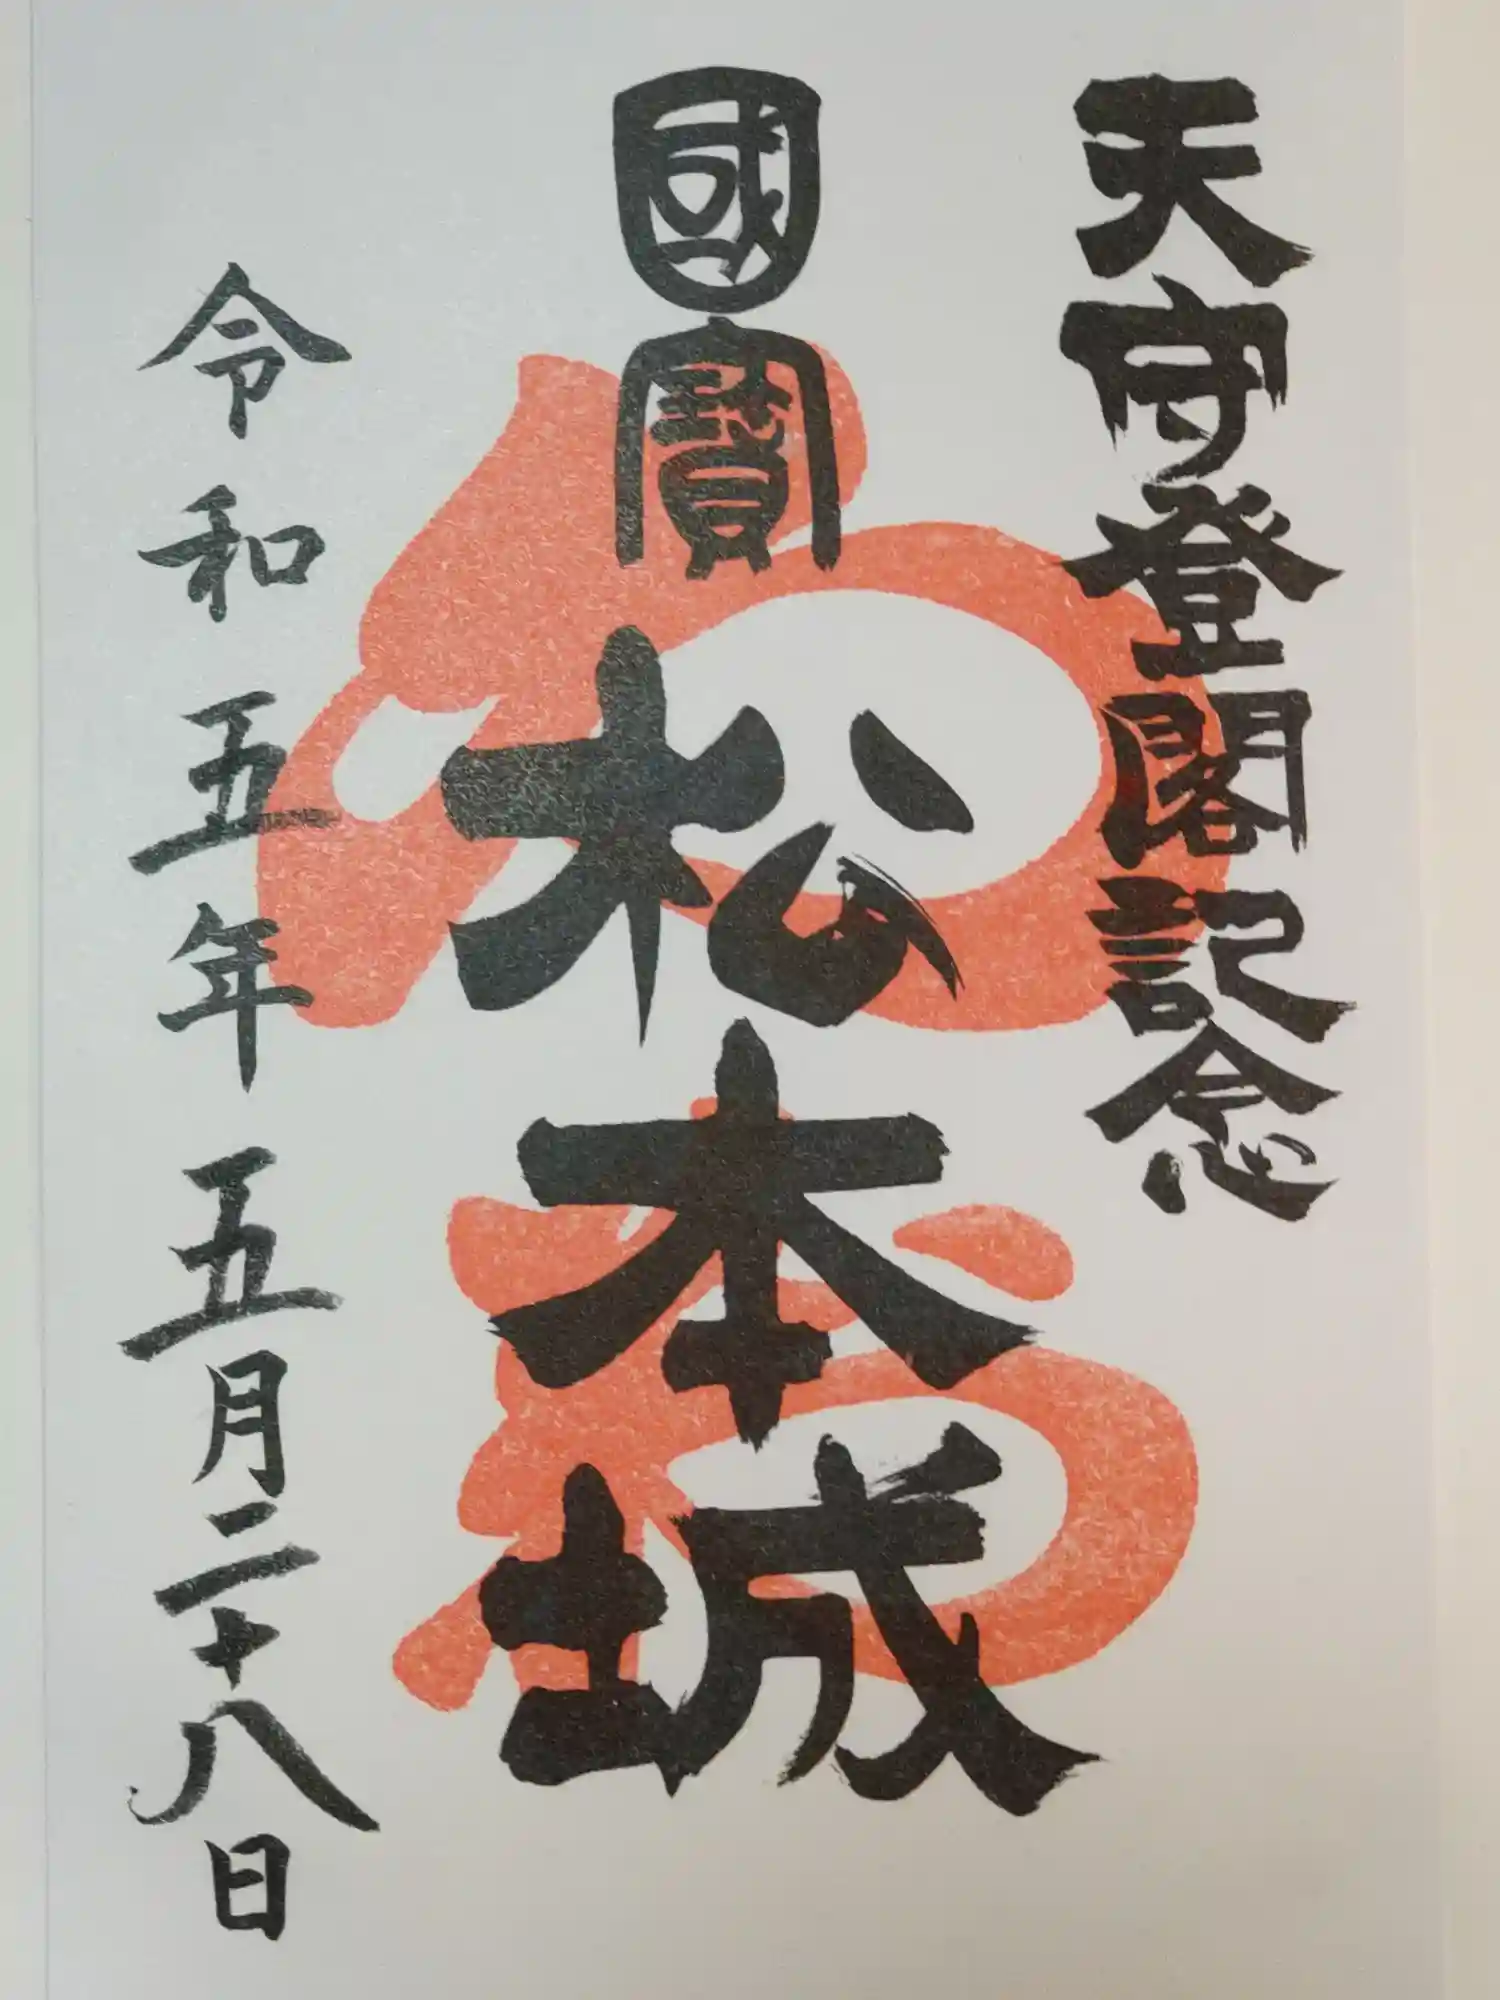 天守登閣記念
國寳松本城
令和五年五月二十八日